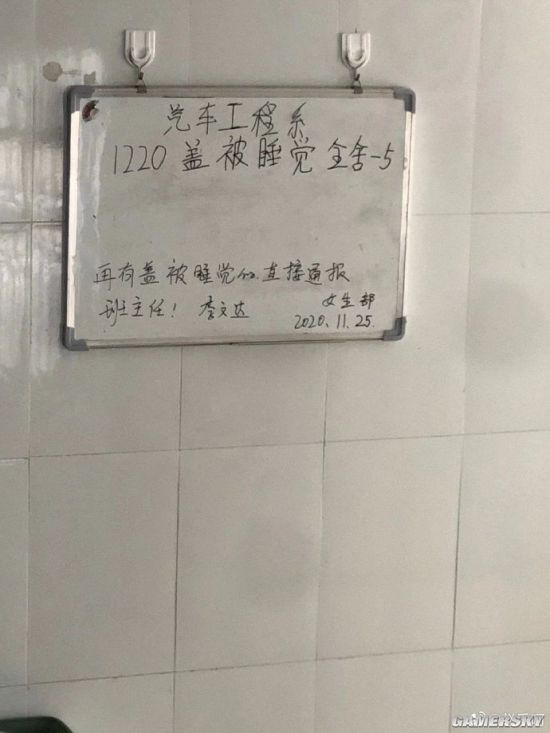 汽车工程系
1220 盖被睡觉 全舍-5
再有盖被睡觉的直接通报
班主任! 李文达
女生部
2020.11.25
GAMERSKY